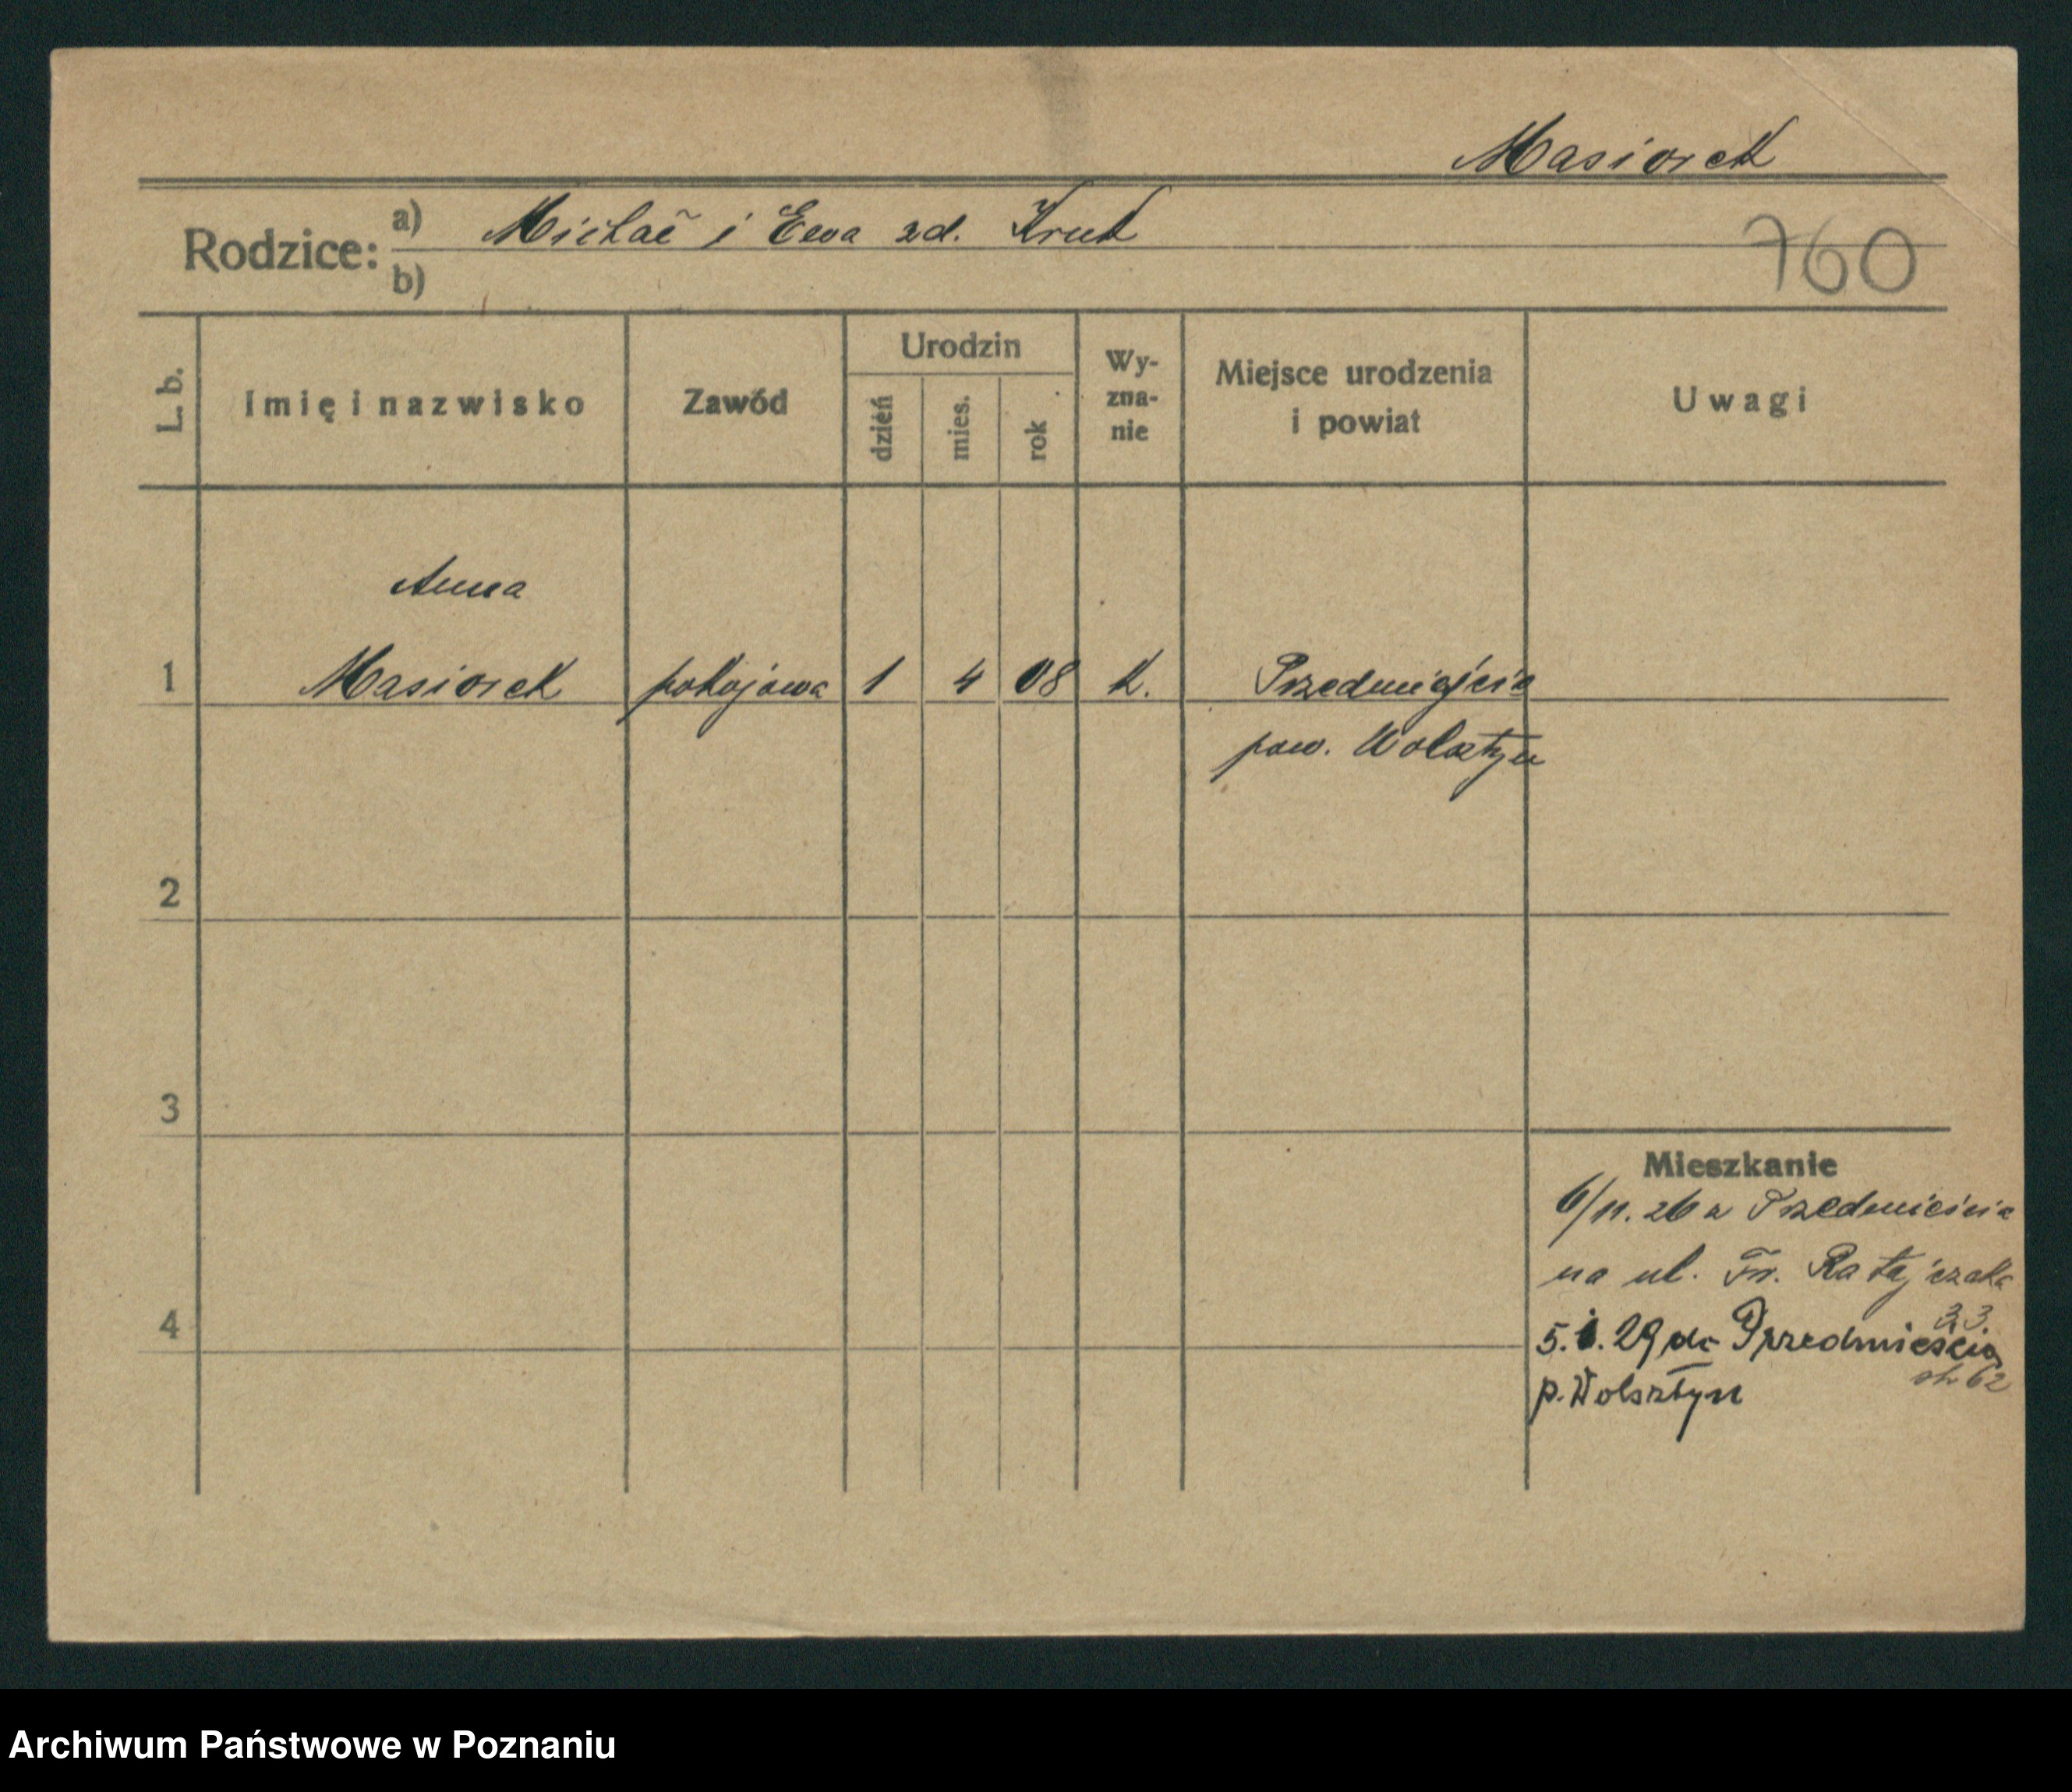 Masiorek
Rodzice: a) Michał i Ewa zd. Kruk
b)
760
L. b.
Imię i nazwisko
Zawód
Urodzin
dzień
mies.
rok
Wy-
zna-
nie
Miejsce urodzenia
i powiat
Uwagi
Anna
1 Masiorek pokojowa 1 4 08 k. Przedmieście
pow. Wolsztyn
2
3
4
Mieszkanie
6/11. 26 z Przedmieścia
na ul. Fr. Ratajczaka
33.
5.1.29 do Przedmieścia
p. Wolsztyn
62
Archiwum Państwowe w Poznaniu